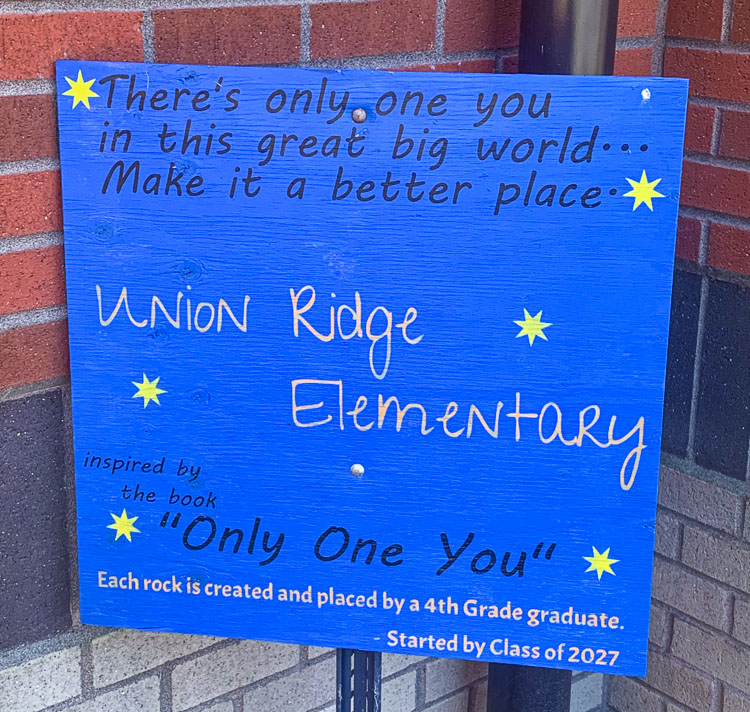 There's only one you
in this great big world...
Make it a better place.
Union Ridge
Elementary
inspired by
the book
"Only One You"
Each rock is created and placed by a 4th Grade graduate.
- Started by Class of 2027